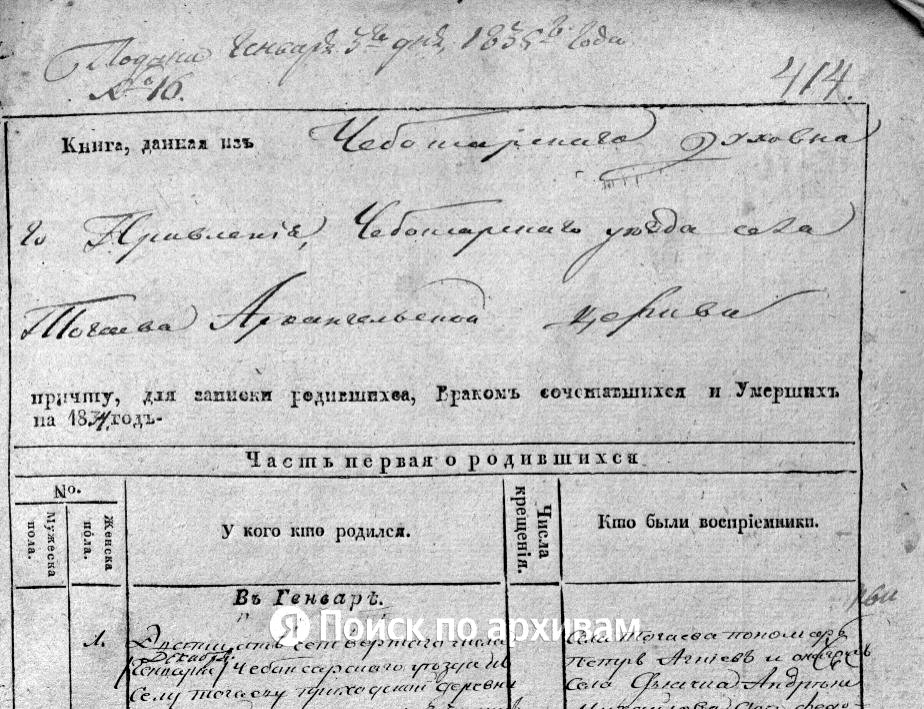 Подана Генваря 3го дня, 1835го года
№ 16.
414.
Книга, данная изъ Чебоксарскаго Духовна
го Правленія, Чебоксарскаго уѣзда села
Тогаева Архангельской церкви
причту, для записки родившихся, Бракомъ сочетавшихся и Умершихъ
на 1834 годъ-
Часть первая о родившихся
№.
Мужеска пола.
Женска пола.
У кого кто родился.
Числа крещенія.
Кто были воспріемники.
Въ Генварѣ.
Я Поиск по архивам
1. Двадцать четвертого числа
Декабря
Генваря Чебоксарскаго уѣзда въ
селу Тогаеву приходской деревни
Села Тогаева пономарь
Петръ
села Андрѣя